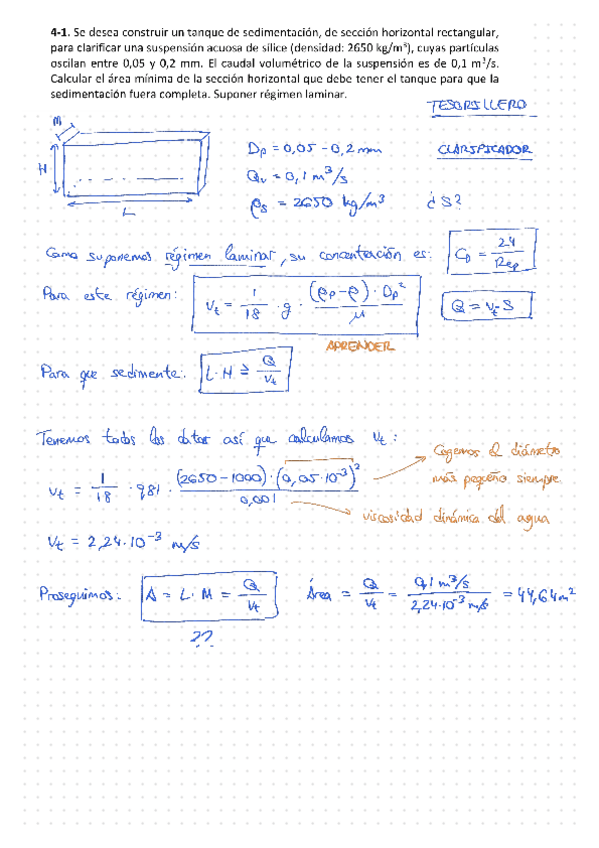 4-1. Se desea construir un tanque de sedimentación, de sección horizontal rectangular,
para clarificar una suspensión acuosa de sílice (densidad: 2650 kg/m³), cuyas partículas
oscilan entre 0,05 y 0,2 mm. El caudal volumétrico de la suspensión es de 0,1 m³/s.
Calcular el área mínima de la sección horizontal que debe tener el tanque para que la
sedimentación fuera completa. Suponer régimen laminar.
TESORILLERO
M
H
L
Dp = 0,05 - 0,2 mm
CLARIFICADOR
Qv = 0,1 m³/s
ρs = 2650 kg/m³ ¿S?
Como suponemos régimen laminar, su concentración es: Cp = 24/Rep
Para este régimen: vt = 1/18 · g · (ρp-ρ)·Dp²/μ
Q = vt·S
APRENDER
Para que sedimente: L·M ≥ Q/vt
Tenemos todos los datos así que calculamos vt:
Cogemos el diámetro
más pequeño siempre.
vt = 1/18 · 9,81 · (2650-1000)·(0,05·10⁻³)²/0,001
viscosidad dinámica del agua
vt = 2,24·10⁻³ m/s
Proseguimos: A = L·M = Q/vt Área = Q/vt = 0,1 m³/s / 2,24·10⁻³ m/s = 44,64 m²
??